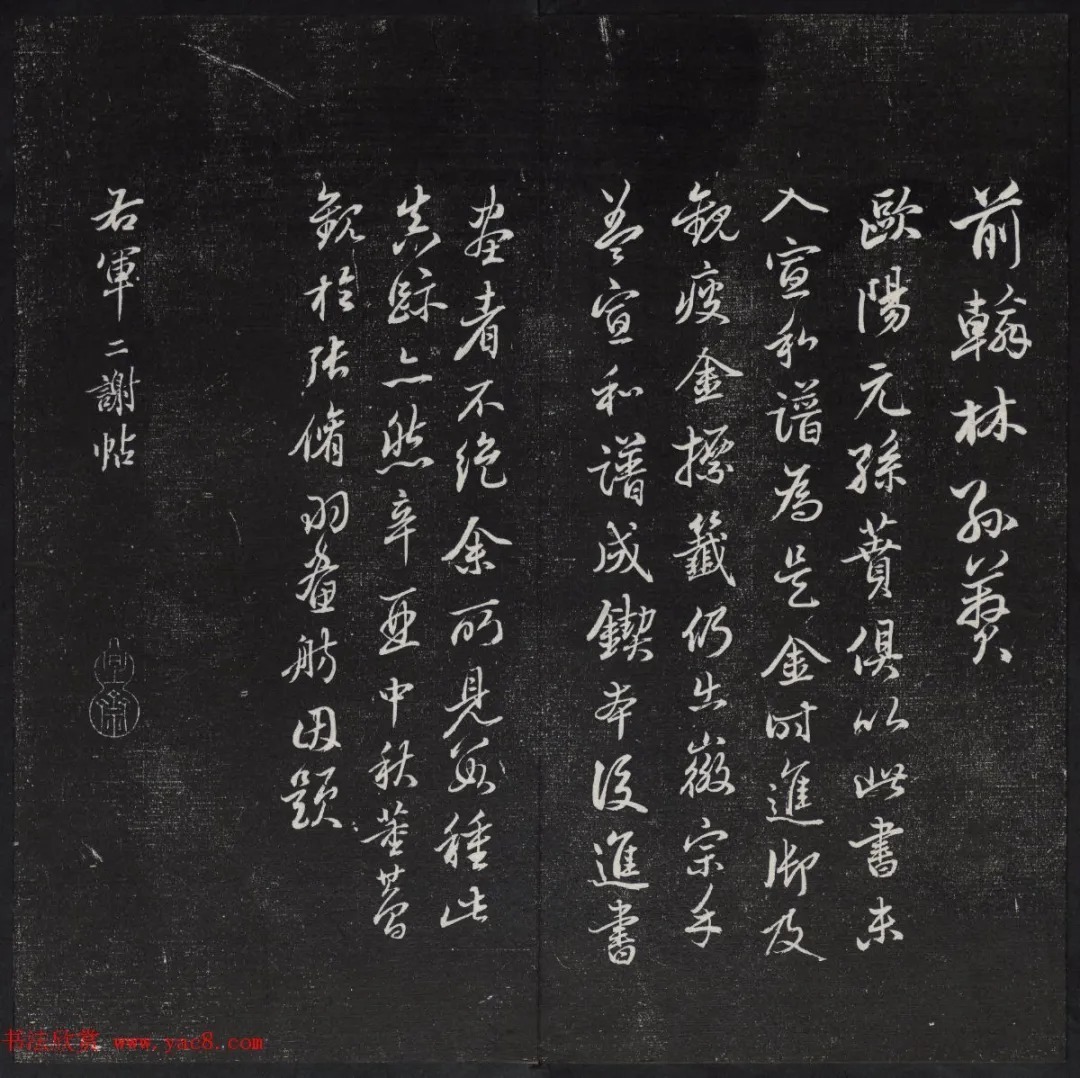 前翰林孫蕡
歐陽元孫蕡俱以此書未
入宣和譜為是金時進御及
觀瘦金標籤仍出徽宗手
蓋宣和譜成鍥本後進書
畫者不絕余所見數種此
真跡亦然辛酉中秋董
觀於張脩羽畫舫因題
右軍二謝帖
书法欣赏 www.yac8.com